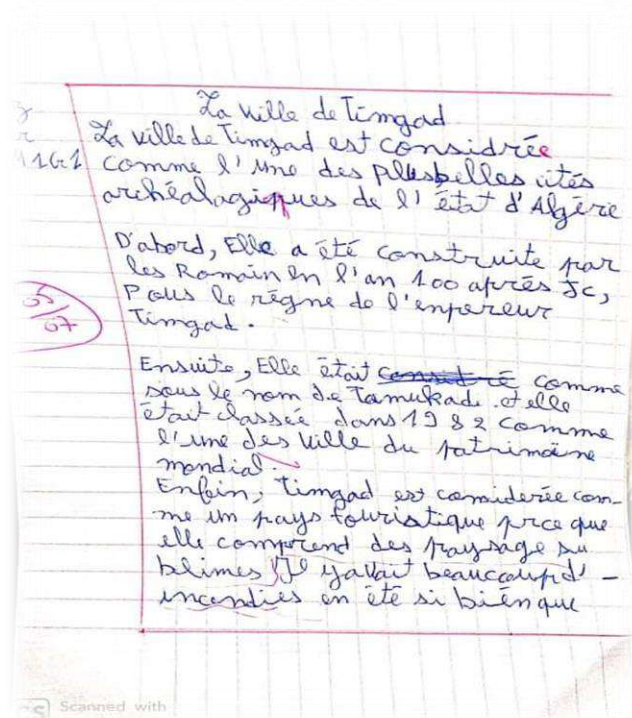 La ville de Timgad
La ville de Timgad est considrée
1G1 comme l'une des plus belles cités
archéalagiques de l'état d'Algérie
D'abord, Elle a été construite par
les Romain en l'an 100 aprés JC,
Pous le régne de l'enpereur
Timgad.
05/07
Ensuite, Elle était comme
sous le nom de Tamukadi. et elle
était classée dans 1982 comme
l'une des ville du patrimoine
mondial.
Enfein, Timgad est comiderée com-
me un pays touristique prce que
elle comprend des paysage su
blimes, Il yavait beaucoup d'-
incendies en été si bien que
CS Scanned with